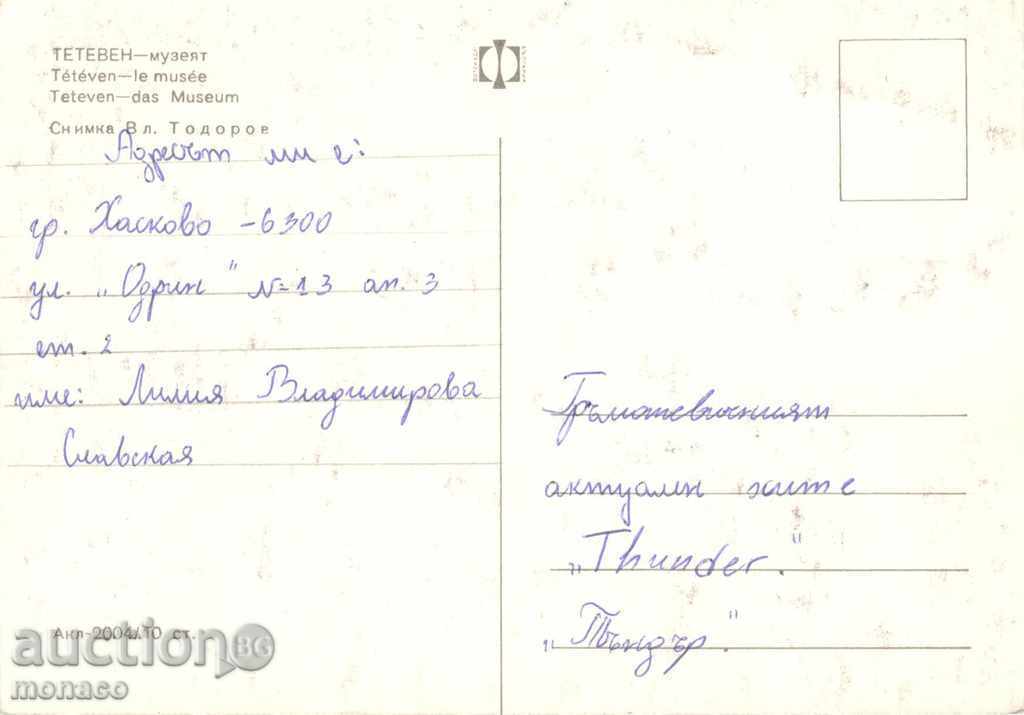 ТЕТЕВЕН—музеят
Tétéven—le musée
Teteven—das Museum
Снимка Вл. Тодоров
Адресът ми е:
гр. Хасково - 6300
ул. „Одрин“ № 13 ап. 3
ет. 2
име: Лилия Владимирова
Славская
Гръмотевичният
актуален хит е
„Thunder.“
„Тъндър“.
Акл-2004/10 ст.
auction BG
monaco